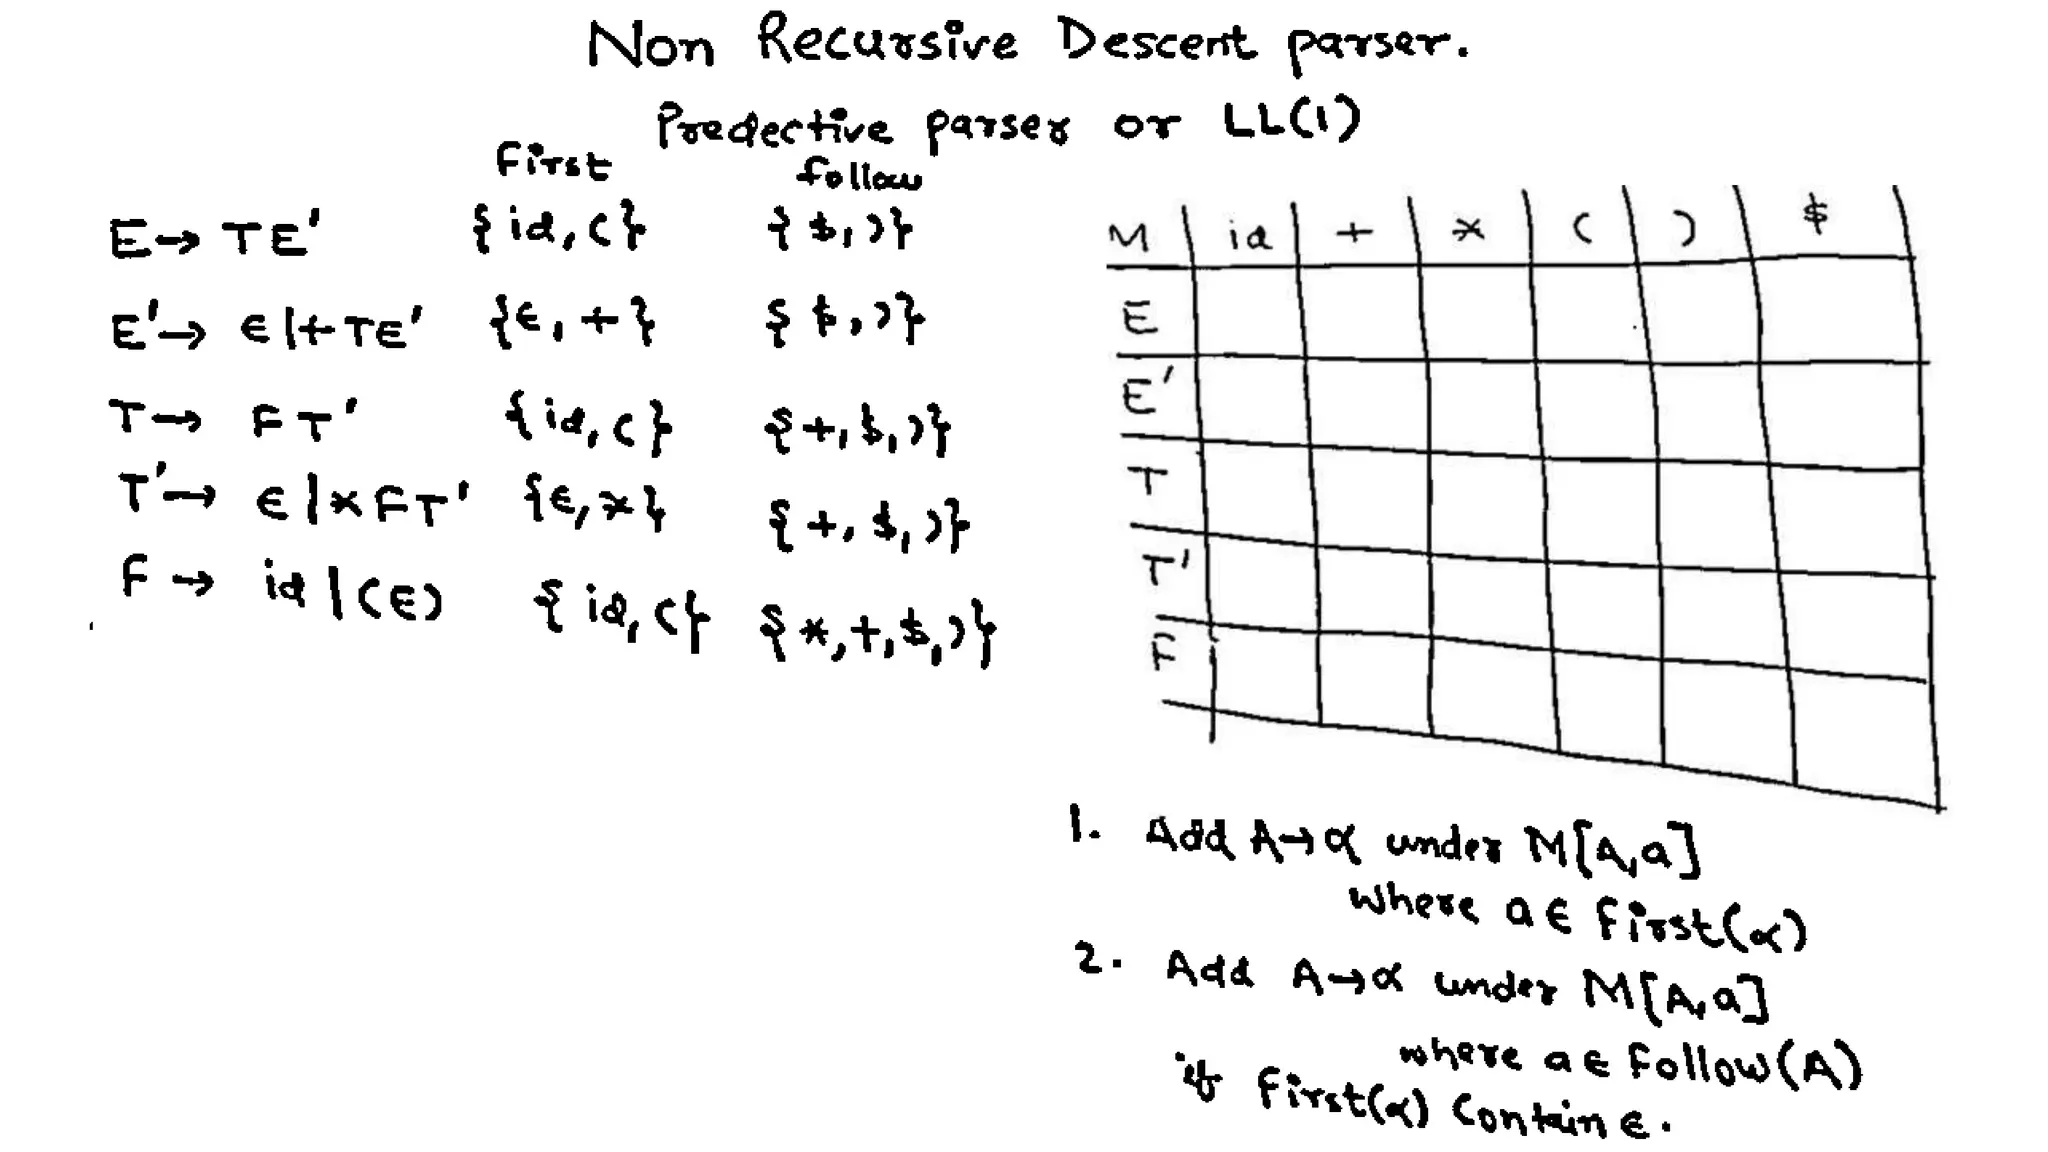 Non Recursive Descent parser.
Predective parser or LL(1)
First Follow
E→ TE' {id,(} {$,)}
E'→ ϵ|+TE' {ϵ,+} {$,)}
T→ FT' {id,(} {+,$,)}
T'→ ϵ|*FT' {ϵ,*} {+,$,)}
F→ id|(E) {id,(} {*,+,$,)}
M id + * ( ) $
E
E'
T
T'
F
1. Add A→α under M[A,a]
where a ϵ First(α)
2. Add A→α under M[A,a]
where a ϵ Follow(A)
if First(α) Contain ϵ.